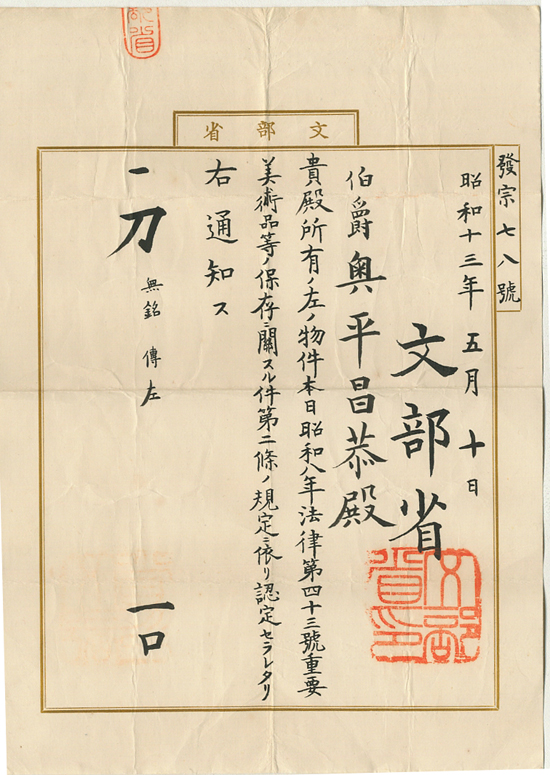 部省
文部省
發宗七八號
昭和十三年五月十日
文部省
文部省印
伯爵奥平昌恭殿
貴殿所有ノ左ノ物件本日昭和八年法律第四十三號重要
美術品等ノ保存ニ關スル件第二條ノ規定ニ依リ認定セラレタリ
右通知ス
一刀 無銘 傳左 一口